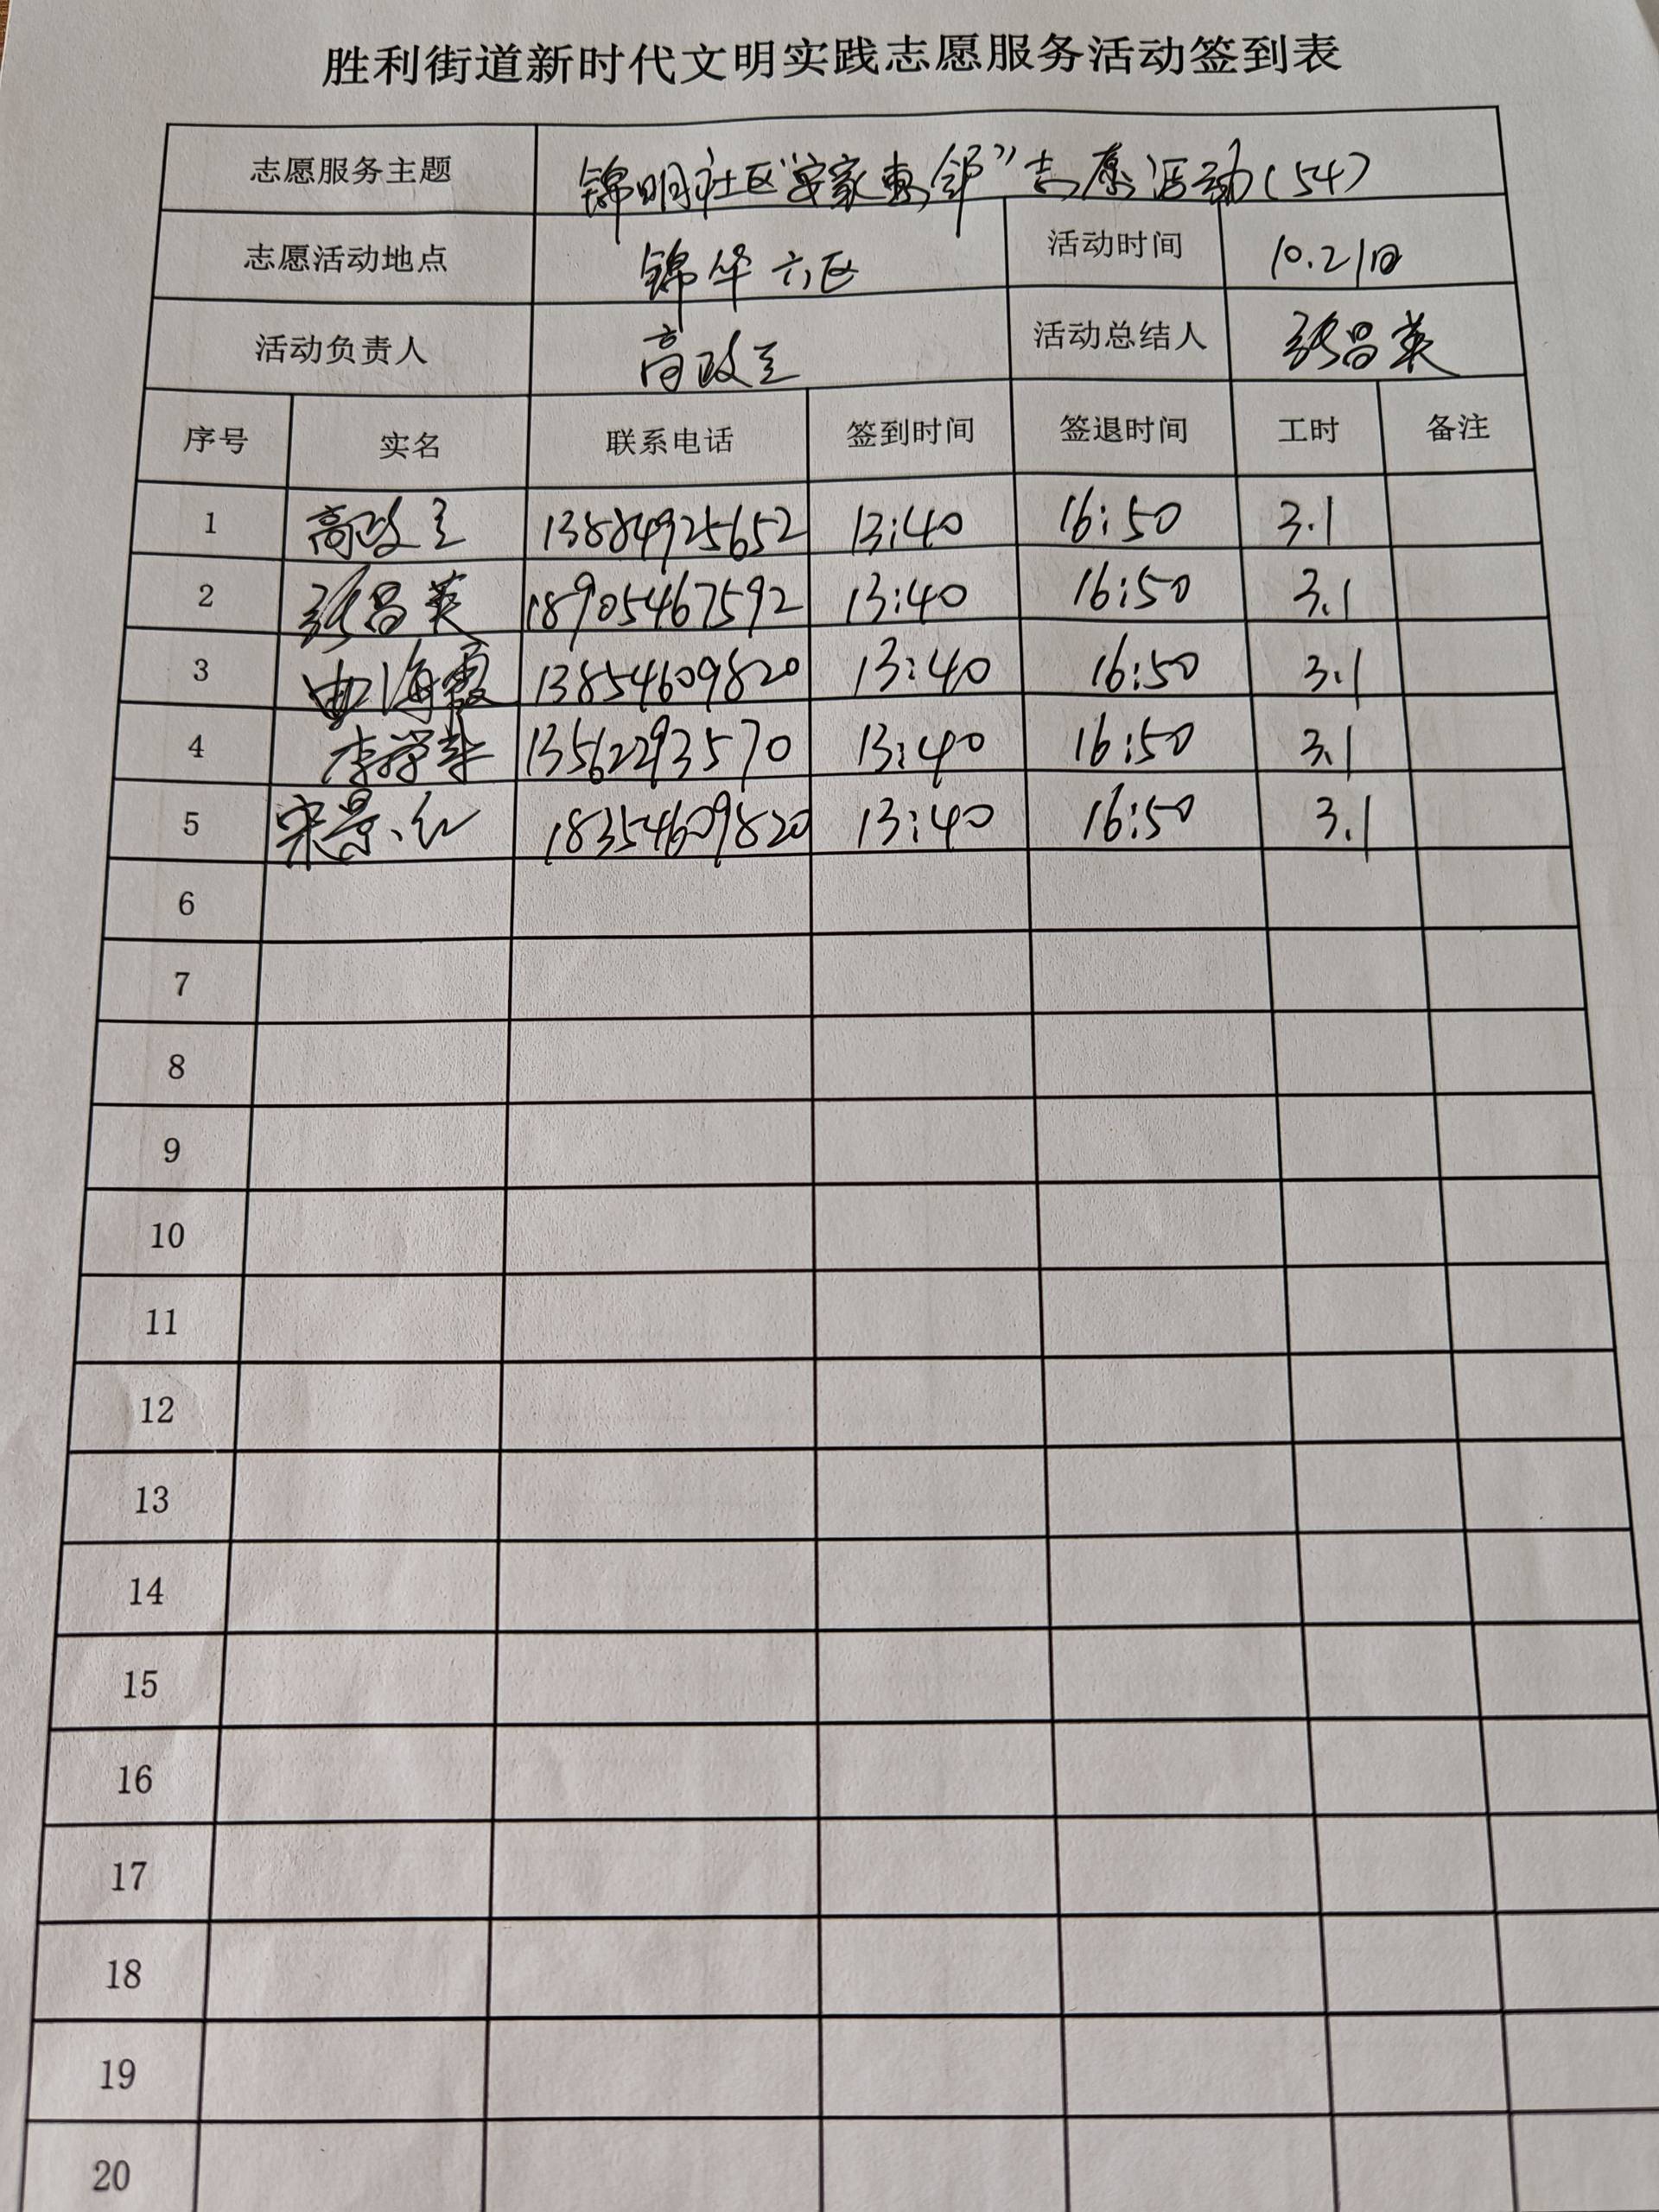 胜利街道新时代文明实践志愿服务活动签到表
志愿服务主题 锦明社区“安家惠邻”志愿活动(54)
志愿活动地点 锦华六区 活动时间 10.21日
活动负责人 高政 活动总结人 张昌英
序号 实名 联系电话 签到时间 签退时间 工时 备注
1 高政 13884925652 13:40 16:50 3.1
2 张昌英 18905467592 13:40 16:50 3.1
3 曲海霞 13854609820 13:40 16:50 3.1
4 李 13562293570 13:40 16:50 3.1
5 宋景红 18354609820 13:40 16:50 3.1
6
7
8
9
10
11
12
13
14
15
16
17
18
19
20